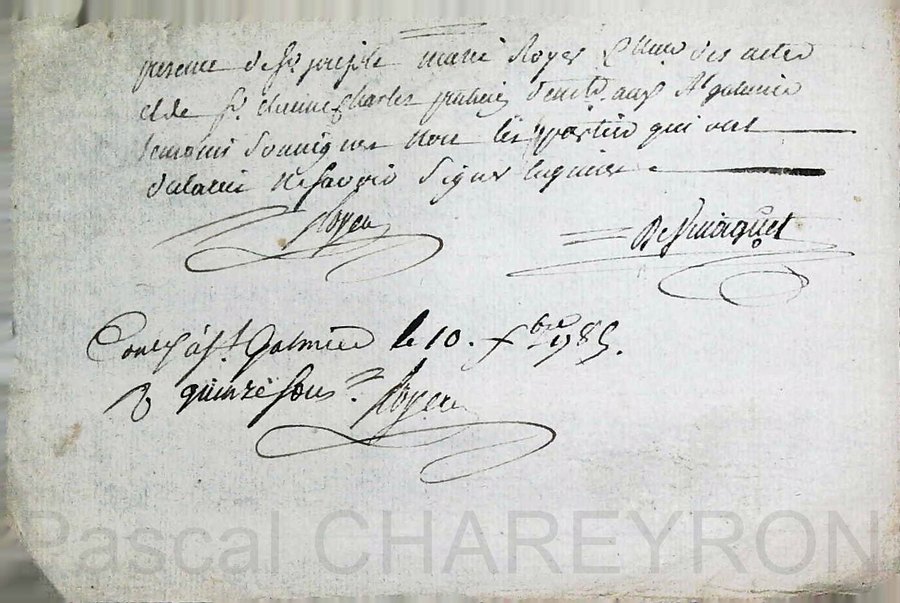 presence de Sr. joseph marie Royer Cler. des actes
et de Sr. etienne Charles praticien dem.t aud. St galmier
temoins soussignes non les parties qui ont
declaré ne savoir signer enquises
Royer
Desmarquet
Con.lé à St. Galmier le 10. xbre 1785.
R quinze sous. Royer
Pascal CHAREYRON